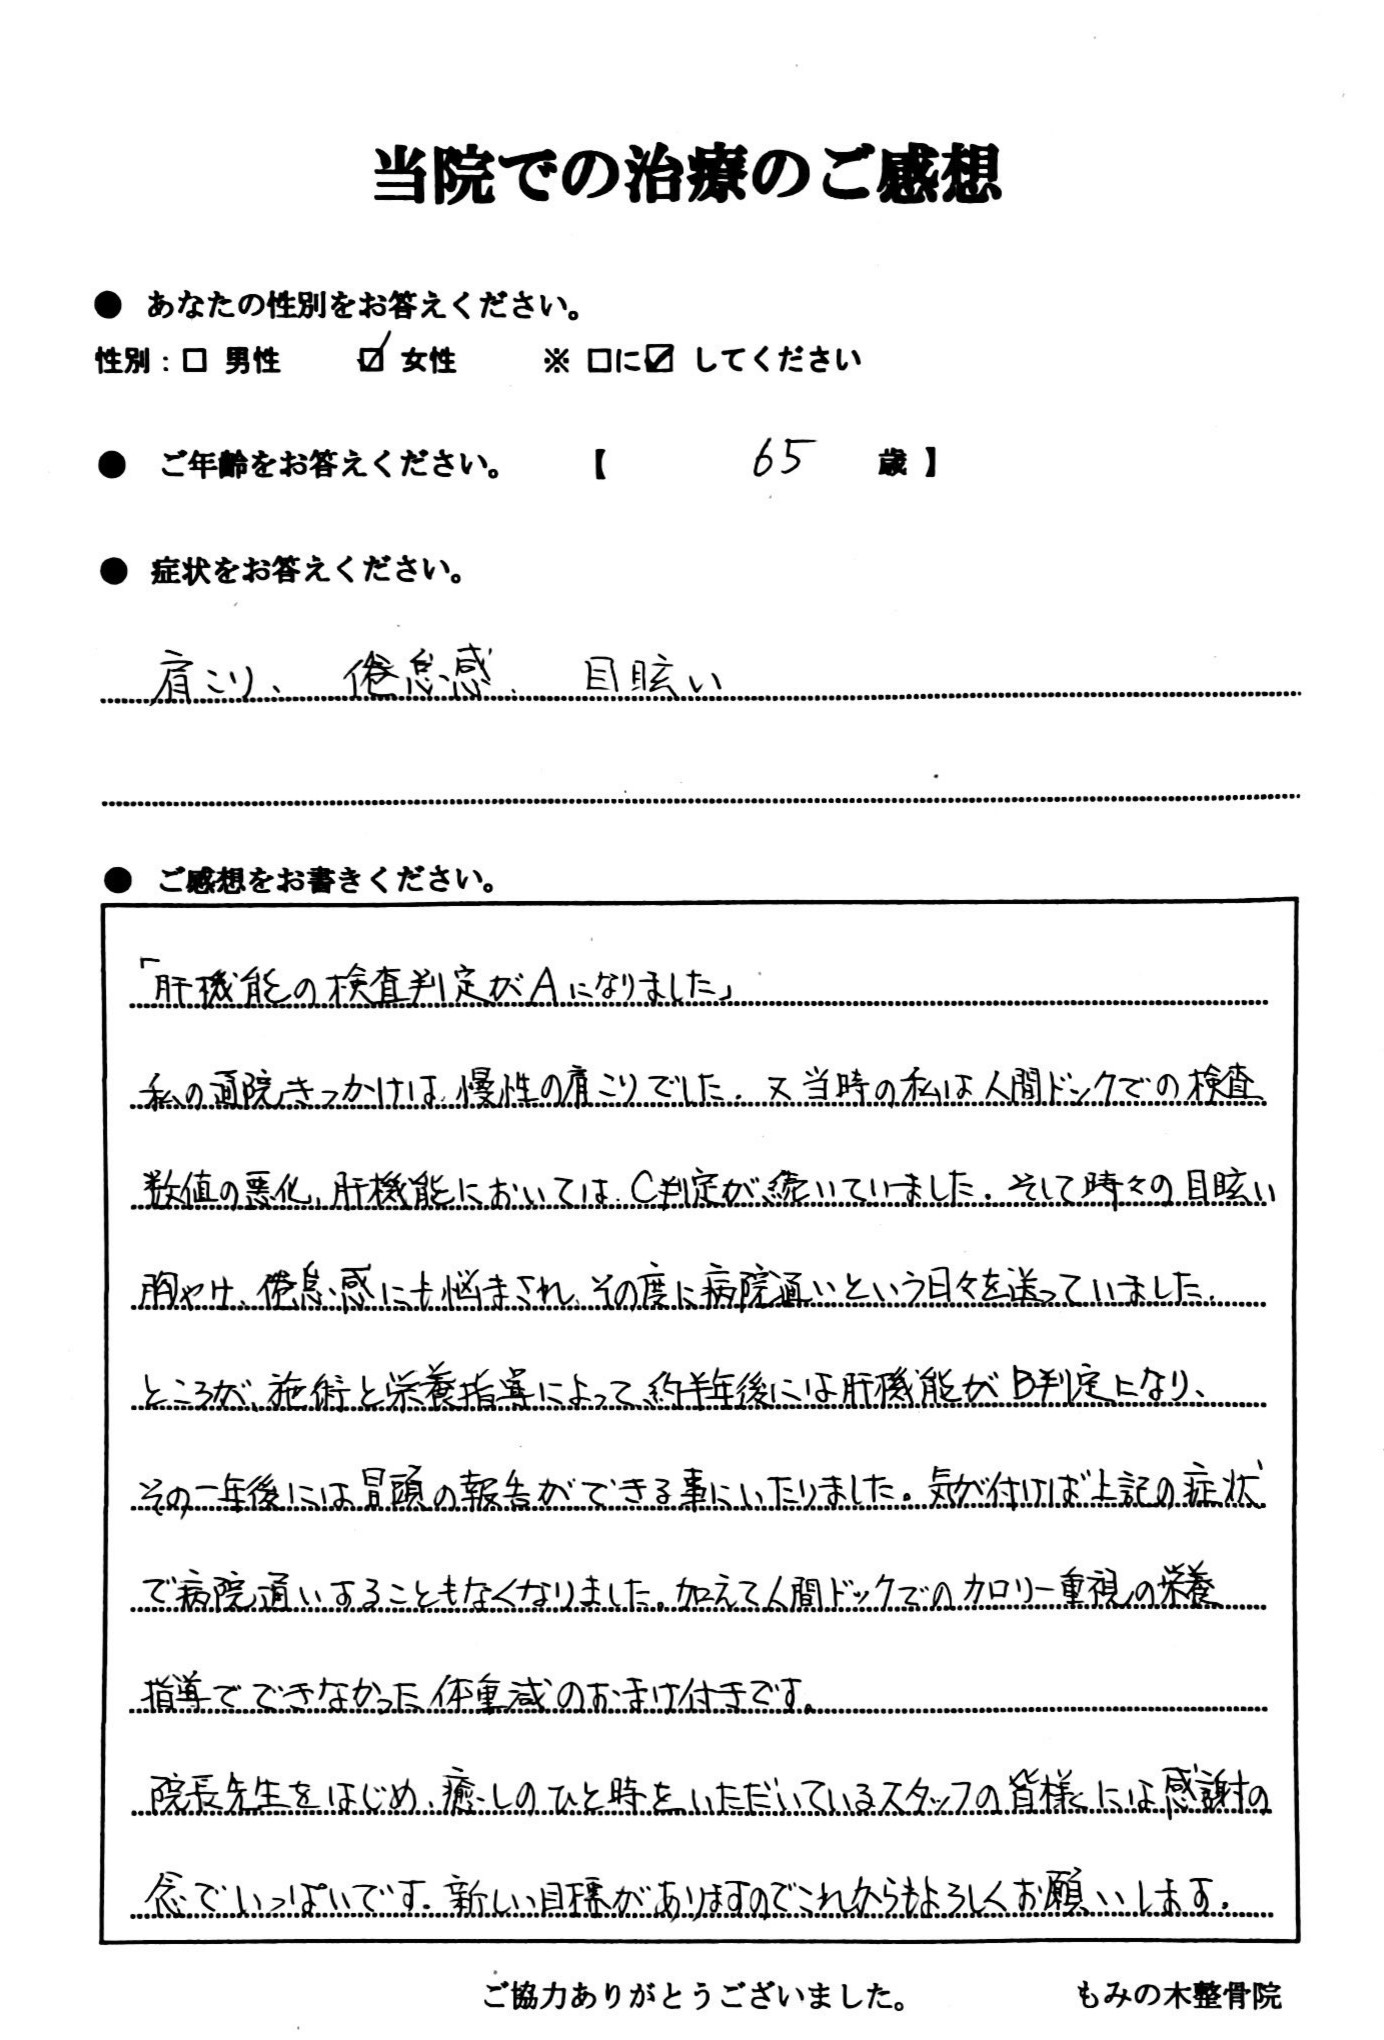 当院での治療のご感想
● あなたの性別をお答えください。
性別：□ 男性 ☑ 女性 ※ □に☑ してください
● ご年齢をお答えください。 【 65 歳 】
● 症状をお答えください。
肩こり、 倦怠感、 目眩い
● ご感想をお書きください。
「肝機能の検査判定がAになりました」
私の通院きっかけは、慢性の肩こりでした。又当時の私は人間ドックでの検査
数値の悪化、肝機能においては、C判定が続いていました。そして時々の目眩い
胸やけ、倦怠感にも悩まされ、その度に病院通いという日々を送っていました。
ところが、施術と栄養指導によって約半年後には肝機能がB判定になり、
その一年後には冒頭の報告ができる事にいたりました。気が付けば上記の症状
で病院通いすることもなくなりました。加えて人間ドックでのカロリー重視の栄養
指導でできなかった体重減のおまけ付きです。
院長先生をはじめ、癒しのひと時をいただいているスタッフの皆様には感謝の
念でいっぱいです。新しい目標がありますのでこれからもよろしくお願いします。
ご協力ありがとうございました。 もみの木整骨院